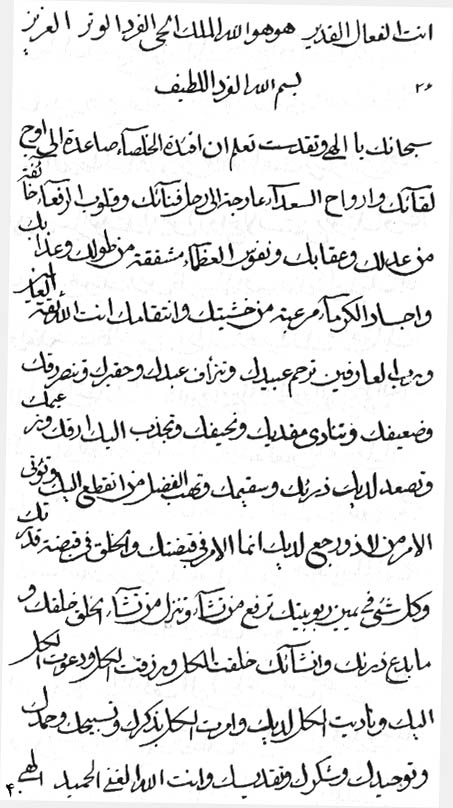 انت الفعال القدير هو هو الله الملك الحی الفرد الوتر العزيز
۲۶ بسم الله الفرد اللطيف
سبحانك يا الهی وتقدست تعلم ان افئدة الخلصاء صاعدة الی اوج
لقائك وارواح السعداء عارجة الی رحل فنائك وقلوب الرفعاء خائفة
من عدلك وعقابك ونفوس العظماء مشفقة من طولك وعذابك
واجساد الكرماء مرعبة من خشيتك وانتقامك انت الله
العارفين ترحم عبيدك وترأف عبدك وحقيرك وتنصر رقك
وضعيفك وتنادی ونحيفك وتجذب اليك ارقك
وتصعد لديك ذرتك وسقيمك وتهب الفضل من انقطع اليك وتؤتی
الامر من لاذ ورجع لديك انما الامر فی قبضتك والخلق فی قبضة قدرتك
وكل شیء فی يمين ربوبيتك ترفع من تشاء وتنزل من تشاء الخلق خلقك و
ما بدع ذرئك وانشائك خلقت الكل ورزقت الكل ودعوت الكل
اليك وناديت الكل لديك وامرت الكل بذكرك وتسبيحك وحمدك
وتوحيدك وشكرك وتقديسك وانت الله الغنی الحميد الهی
۴